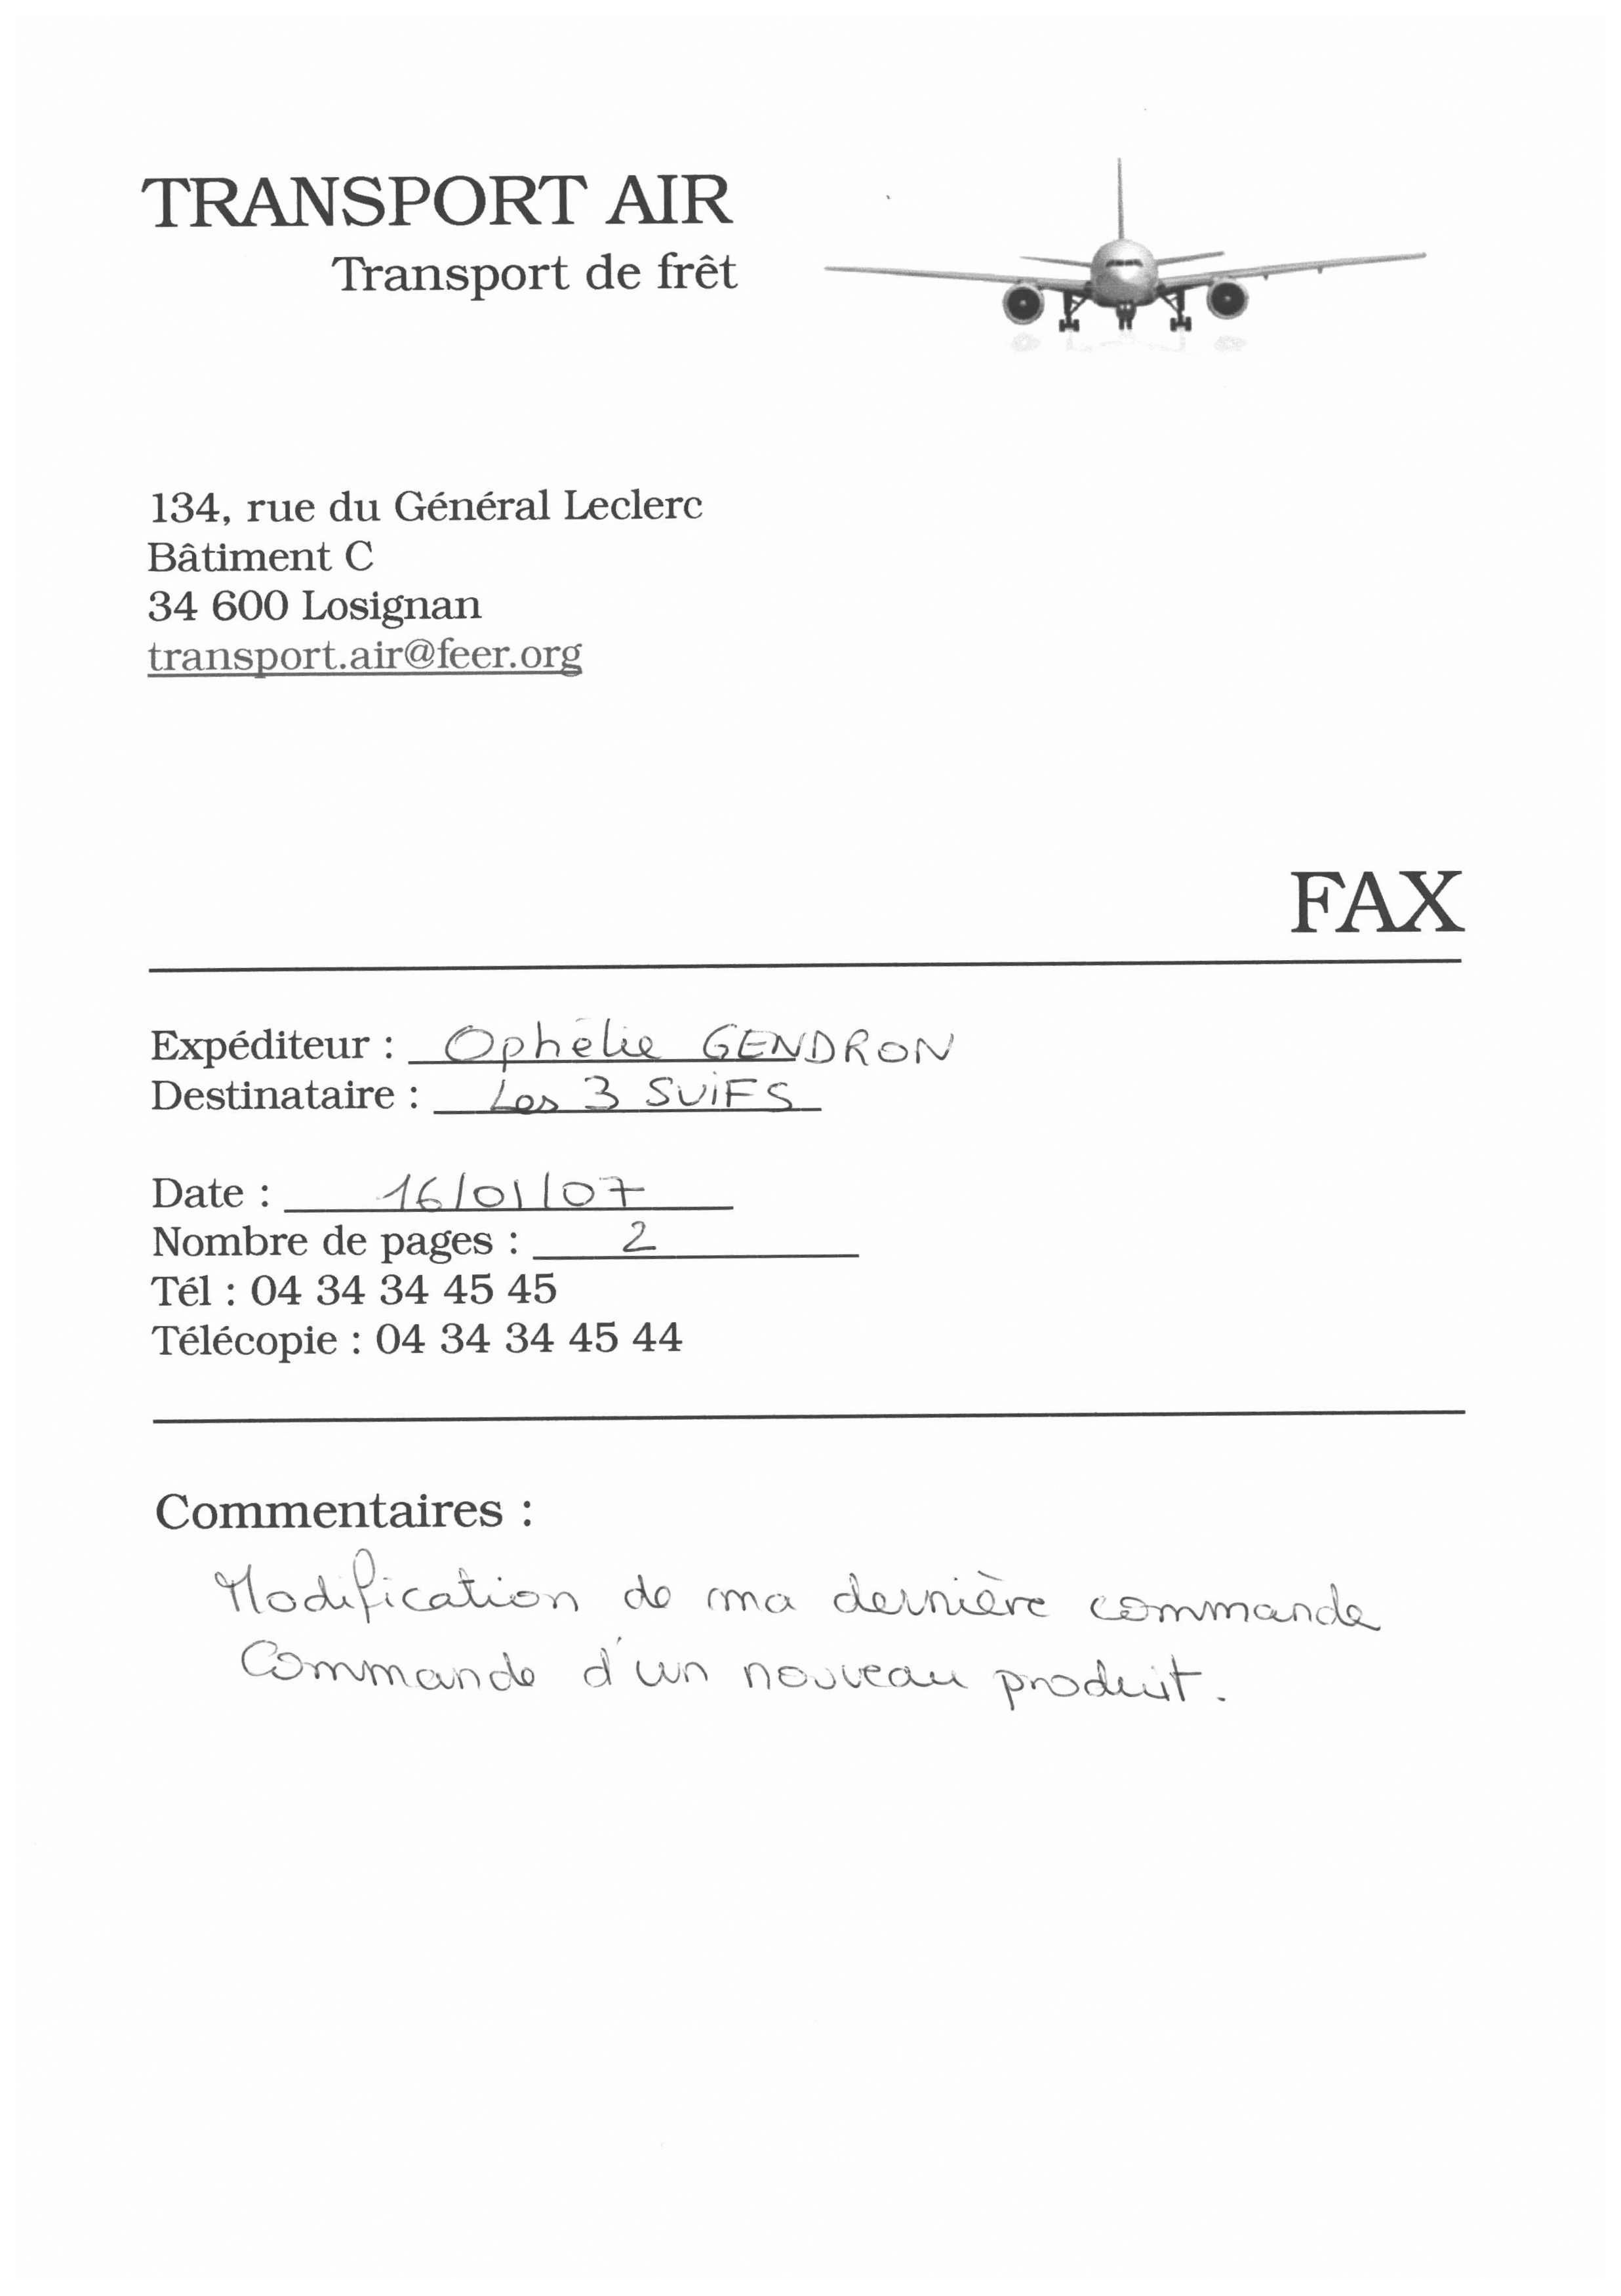 TRANSPORT AIR
Transport de frêt
134, rue du Général Leclerc
Bâtiment C
34 600 Losignan
transport.air@feer.org
FAX
Expéditeur : Ophélie GENDRON
Destinataire : Les 3 SUiFS
Date : 16/01/07
Nombre de pages : 2
Tél : 04 34 34 45 45
Télécopie : 04 34 34 45 44
Commentaires :
Modification de ma dernière commande
Commande d'un nouveau produit.